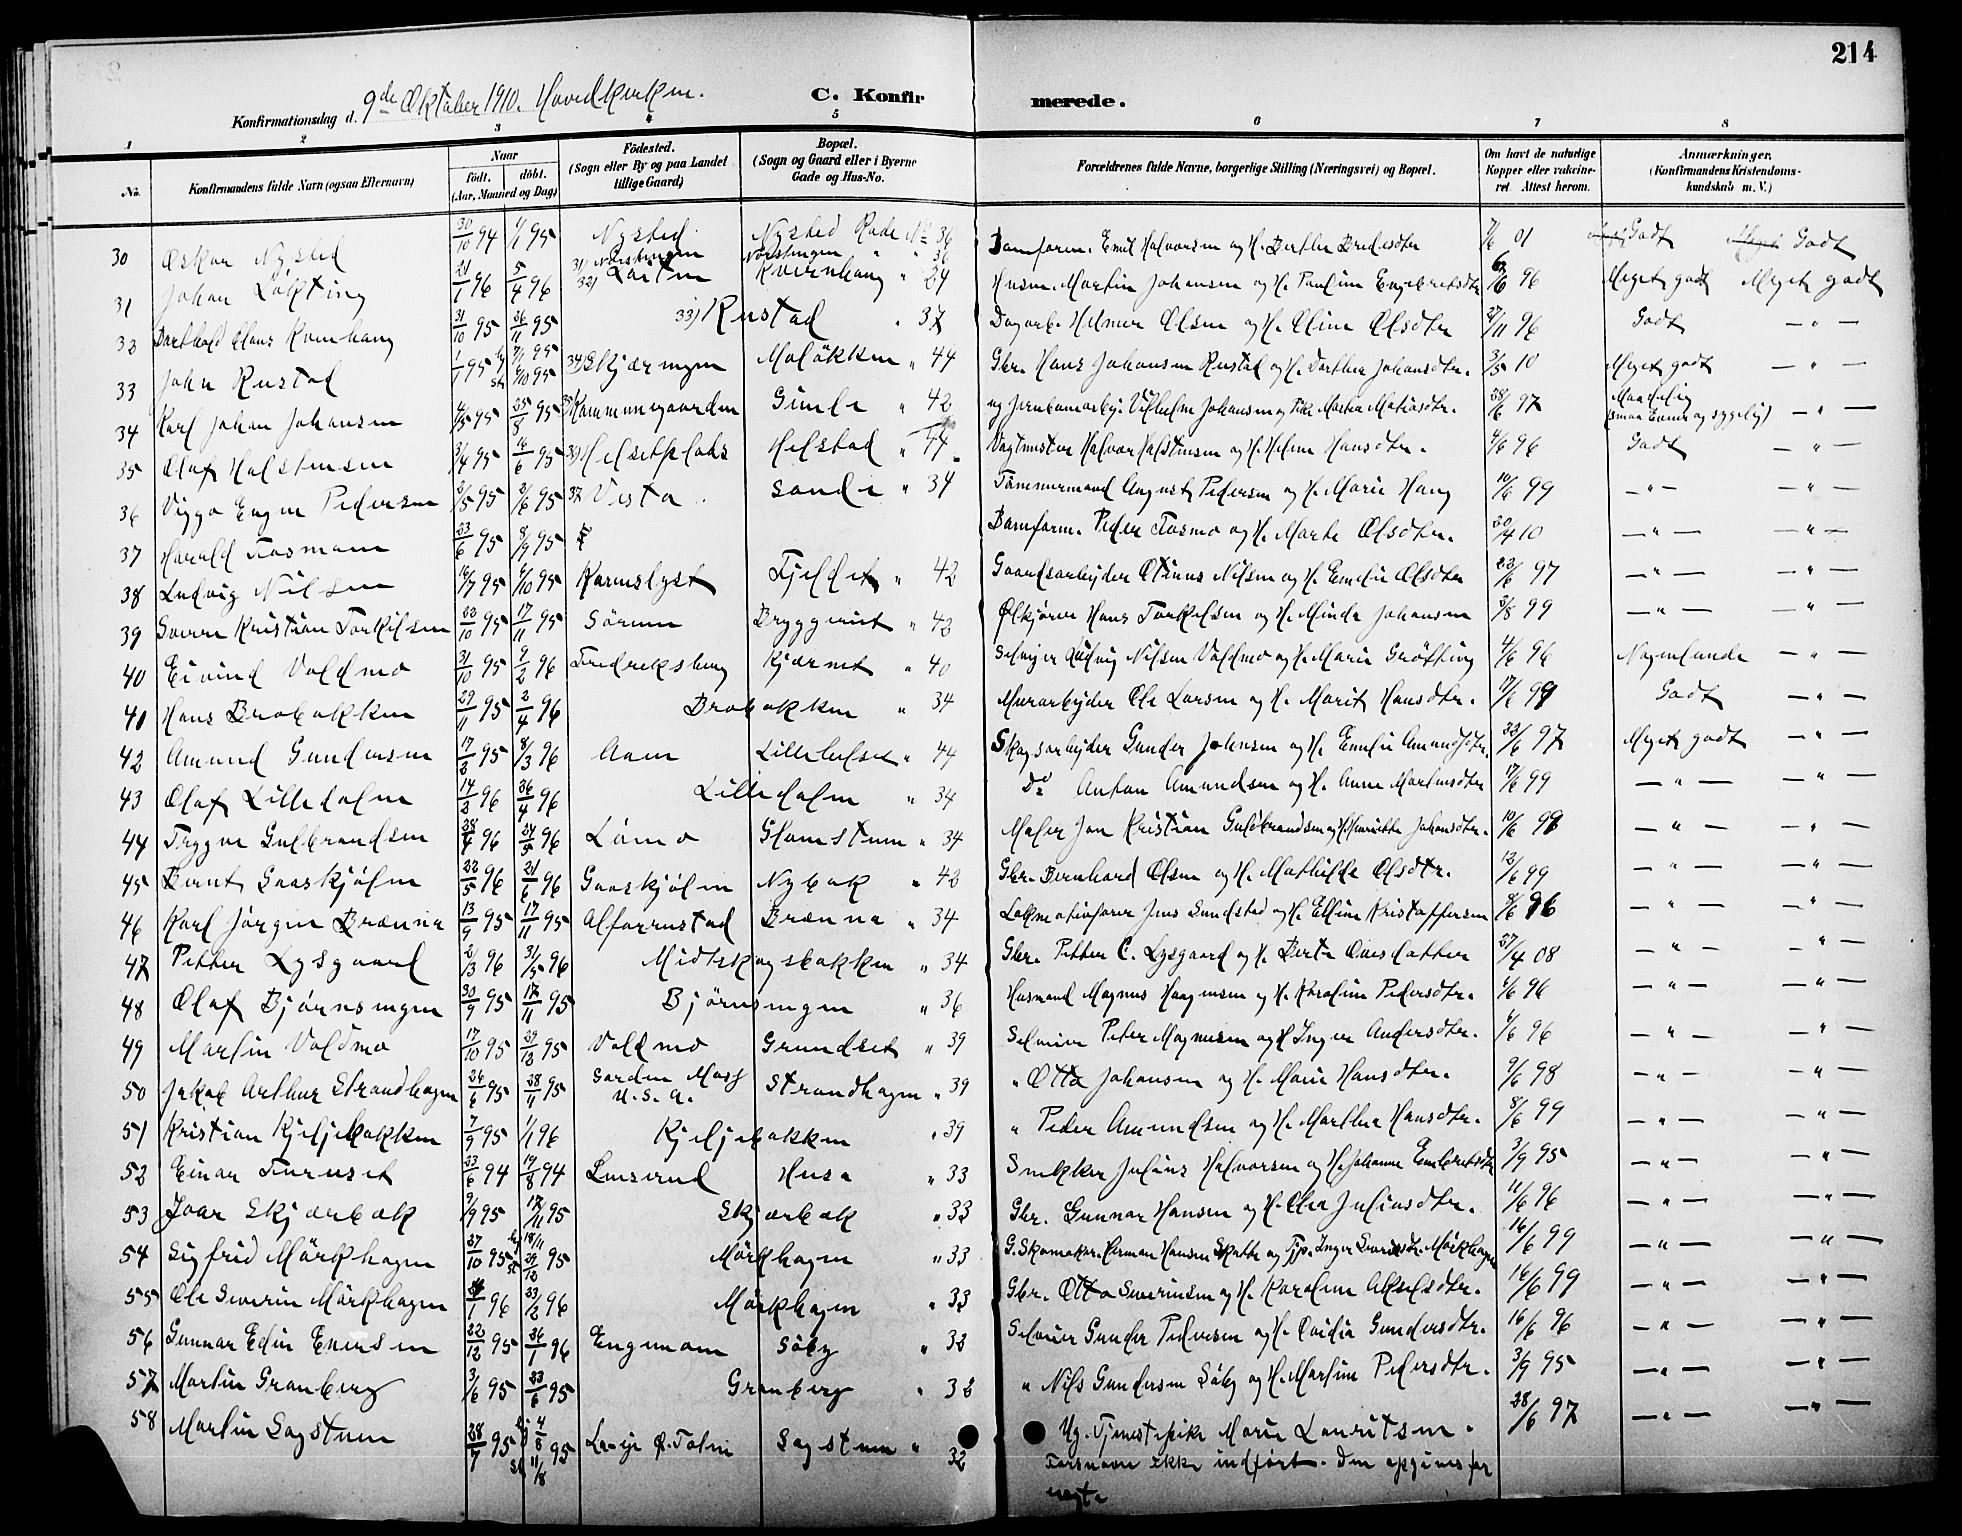 214
Konfirmationsdag d. 9de Oktober 1910. Hovedkirken.
C. Konfirmerede.
1 2 3 4 5 6 7 8
No. Konfirmandens fulde Navn (ogsaa Efternavn) Naar født. døbt. (Aar, Maaned og Dag) Fødested. (Sogn eller By og paa Landet tillige Gaard) Bopæl. (Sogn og Gaard eller i Byerne Gade og Hus-No. Forældrenes fulde Navne, borgerlige Stilling (Næringsvei) og Bopæl. Om havt de naturlige Kopper eller vakcineret Attest herom. Anmærkninger. (Konfirmandens Kristendomskundskab m. V.)
30 Oskar Nysted 30/10 94 1/1 95 Nysted Nysted Rode No 36 Emil Halvorsen og H. Berthe 7/6 01 Godt Godt
31 Johan Løkting 21/1 96 5/4 96 Husm. Martin Johansen og H. Pauline Engebretsdtr 96 Meget godt Meget godt
32 Klaus Kvernhaug 31/10 95 26/11 95 Løiten Kvernhaug " 24 Dagarb. Helmer Olsen og H. Oline Olsdtr 27/11 96 Godt — " —
33 John Rustad 1/1 95 7/1 95 6/10 95 33) Rustad " 37 Gbr. Hans Johansen Rustad og H. Dorthea Johansdtr. 3/5 10 Meget godt — " —
34 Karl Johan Johansen 4/5 95 25/8 95 34) Skjæringen Moløkken " 44 ug Jernbanearbp. Vilhelm Johansen og Pike Mathea Matiasdtr. 97 Maadelig (smaa Evner og sygelig) — " —
35 Olaf Halstensen 3/4 95 16/6 95 Kommunegaarden Gimle " 42 Vagtmester Halvor Halstensen og H. Helene Hansdtr. 4/6 96 Godt — " —
36 Viggo Enger Pedersen 2/5 95 2/6 95 Helsetplads Helstad " 44 Tømmermand August Pedersen og H. Marie Haug 10/6 99 — " — — " —
37 Harald Tosmoen 23/6 95 8/9 95 37 Vesta Sande " 34 Banform. Peder Tosmo og H. Marte Olsdtr. 20/4 10 — " — — " —
38 Ludvig Nilsen 16/7 95 6/10 95 Karenslyst Fjeldet " 42 Gaardsarbejder Otinus Nilsen og H. Emelie Olsdtr 23/6 97 — " — — " —
39 Sverre Kristian Torkilsen 22/10 95 17/11 95 Sørum Bryggeriet " 42 Ølkjører Hans Torkelsen og H. Minda Johansen 3/8 99 — " — — " —
40 Eivind Voldmo 31/10 95 9/2 96 Fredriksberg Kjærnet " 40 Selveier Ludvig Nilsen Voldmo og H. Marie Grøtting 4/6 96 Nogenlunde — " —
41 Hans Brobakken 29/11 95 2/4 96 Brobakken " 34 Murarbejder Ole Larsen og H. Marit Hansdtr. 17/6 99 Godt — " —
42 Amund Gundersen 17/2 95 8/3 96 Aaen Lillehelset " 44 Skogsarbejder Gunder Johnsen og H. Emilie Amundsdtr. 23/6 97 Meget godt — " —
43 Olaf Lilleholen 14/2 96 26/4 96 Lilleholen " 34 Do Anton Amundsen og H. Anne Martinsdtr 17/6 99 — " — — " —
44 Trygve Gulbrandsen 28/4 96 24/5 96 Lømo Glomstuen " 34 Maler Jon Kristian Guldbrandsen og H. Henriette Johansdtr. 10/6 98 — " — — " —
45 Bernt Gaaskjølen 22/5 96 21/6 96 Gaaskjølen Nybak " 42 Gbr. Bernhard Olsen og H. Mathilde Olsdtr. 12/6 99 — " — — " —
46 Karl Jørgen Brænne 13/9 95 17/11 95 Alfarrustad Brænne " 34 Lokmotivfører Jens Sundsted og H. Elline Kristoffersen 8/6 96 — " — — " —
47 Petter Lysgaard 2/3 96 31/5 96 Midtskogsbakken " 34 Gbr. Petter C. Lysgaard og H. Berte Olinesdatter 27/4 08 — " — — " —
48 Olaf Bjørnsingen 30/9 95 17/11 95 Bjørnsingen " 36 Husmand Magnus Haagensen og H. Karoline Pedersdtr. 6/6 96 — " — — " —
49 Martin Voldmo 17/10 95 29/12 95 Voldmo Grundset " 39 Selveier Peter Magnusen og H. Inger Andersdtr. 4/6 96 — " — — " —
50 Jakob Arthur Strandhagen 26/6 95 28/11 95 Gorden Mass U.S.A. Strandhagen " 39 " Otto Johansen og H. Marie Hansdtr. 9/6 98 — " — — " —
51 Kristian Kjeljebakken 7/9 95 1/1 96 Kjeljebakken " 39 " Peder Amundsen og H. Marthe Hansdtr. 8/6 99 — " — — " —
52 Einar Furuset 23/6 94 19/8 94 Lusverud Husa " 33 Snekker Julius Halvorsen og H. Johanne Embretsdtr 3/9 95 — " — — " —
53 Ivar Skjærbæk 9/9 95 17/11 95 Skjærbæk " 33 Gbr. Gunnar Hansen og H. Olea Juliusdtr. 11/6 96 — " — — " —
54 Sigfrid Mørkhagen 27/10 95 18/11 29/12 95 Mørkhagen " 33 G. Skomaker Herman Hansen og Tjp. Inger Severinsdtr. Mørkhagen 16/6 99 — " — — " —
55 Ole Severin Mørkhagen 1 96 23/2 96 Mørkhagen " 33 Gbr. Otto Severinsen og H. Karoline Akselsdtr. 16/6 99 — " — — " —
56 Gunnar Edin Enersen 22/12 95 26/1 96 Engemoen Søby " 32 Selveier Gunder Pedersen og H. Gundersdtr. 16/6 96 — " — — " —
57 Martin Granberg 3/6 95 23/6 95 Granberg " 32 " Nils Gundersen Søby og H. Martine Pedersdtr. 3/9 95 — " — — " —
58 Martin Sagstuen 28/7 95 4/8 11/8 95 Sagstuen " 32 Ug. Tjenestepike Marie Lauritsen. 28/6 97 — " — — " —
Farsnavn ikke indført. Den opgivne far
negte